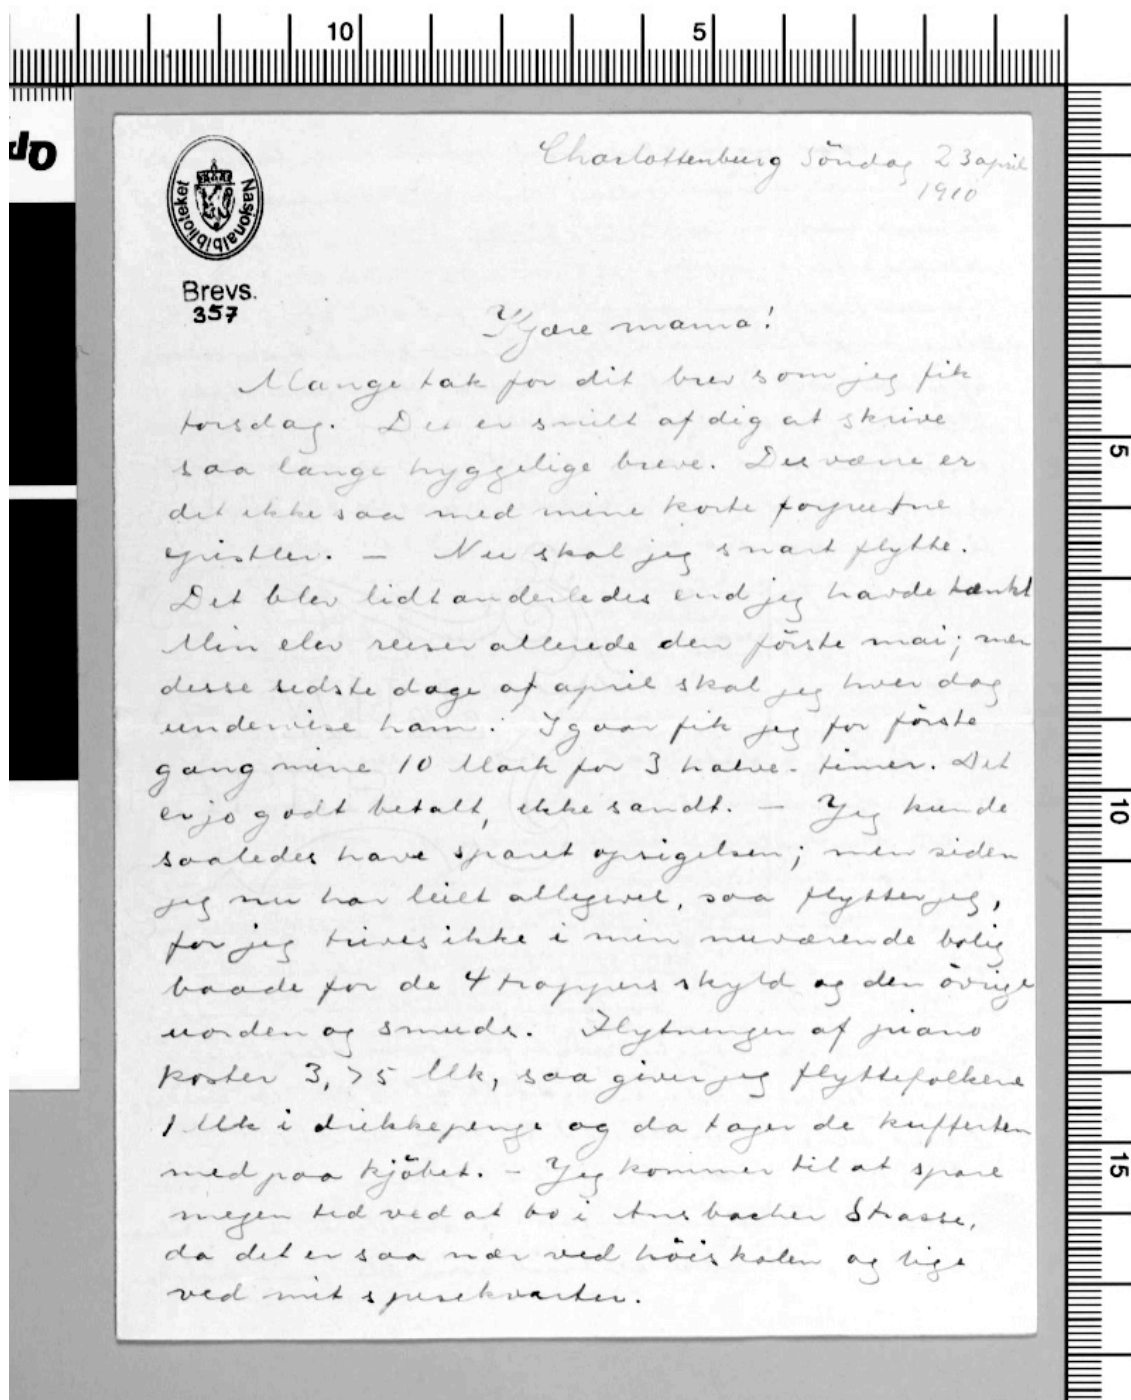 10 5
Nasjonalbiblioteket
Brevs.
357
Charlottenburg söndag 23 april
1910
Kjære mama!
Mange tak for dit brev som jeg fik
torsdag. Det er snilt af dig at skrive
saa lange hyggelige breve. Desværre er
det ikke saa med mine korte forpustne
epistler. – Nu skal jeg snart flytte.
Det blev lidt anderledes end jeg havde tænkt
Min elev reiser allerede den förste mai; men
disse sidste dage af april skal jeg hver dag
undervise ham. Igaar fik jeg for förste
gang mine 10 Mark for 3 halve-timer. Det
er jo godt betalt, ikke sandt. – Jeg kunde
saaledes have sparet opsigelsen; men siden
jeg nu har leiet alligevel, saa flytter jeg,
for jeg trives ikke i min nuværende bolig
baade for de 4 trappers skyld og den övrige
uorden og smuds. Flytningen af piano
koster 3,75 Mk, saa giver jeg flyttefolkene
1 Mk i drikkepenge og da tager de kufferten
med paa kjöbet. – Jeg kommer til at spare
megen tid ved at bo i Ansbacher Strasse,
da det er saa nær ved höiskolen og lige
ved mit spisekvarter.
5
10
15